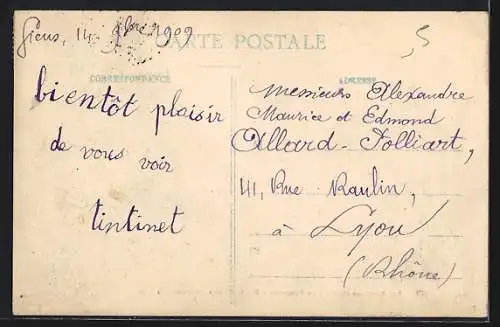 Giens, 14 9bre 1909
CARTE POSTALE
5
CORRESPONDANCE
ADRESSE
bientôt plaisir
de vous voir
tintinet
messieurs Alexandre
Maurice et Edmond
Allard-Jolliart,
41, Rue Raulin,
à
Lyon
(Rhône)